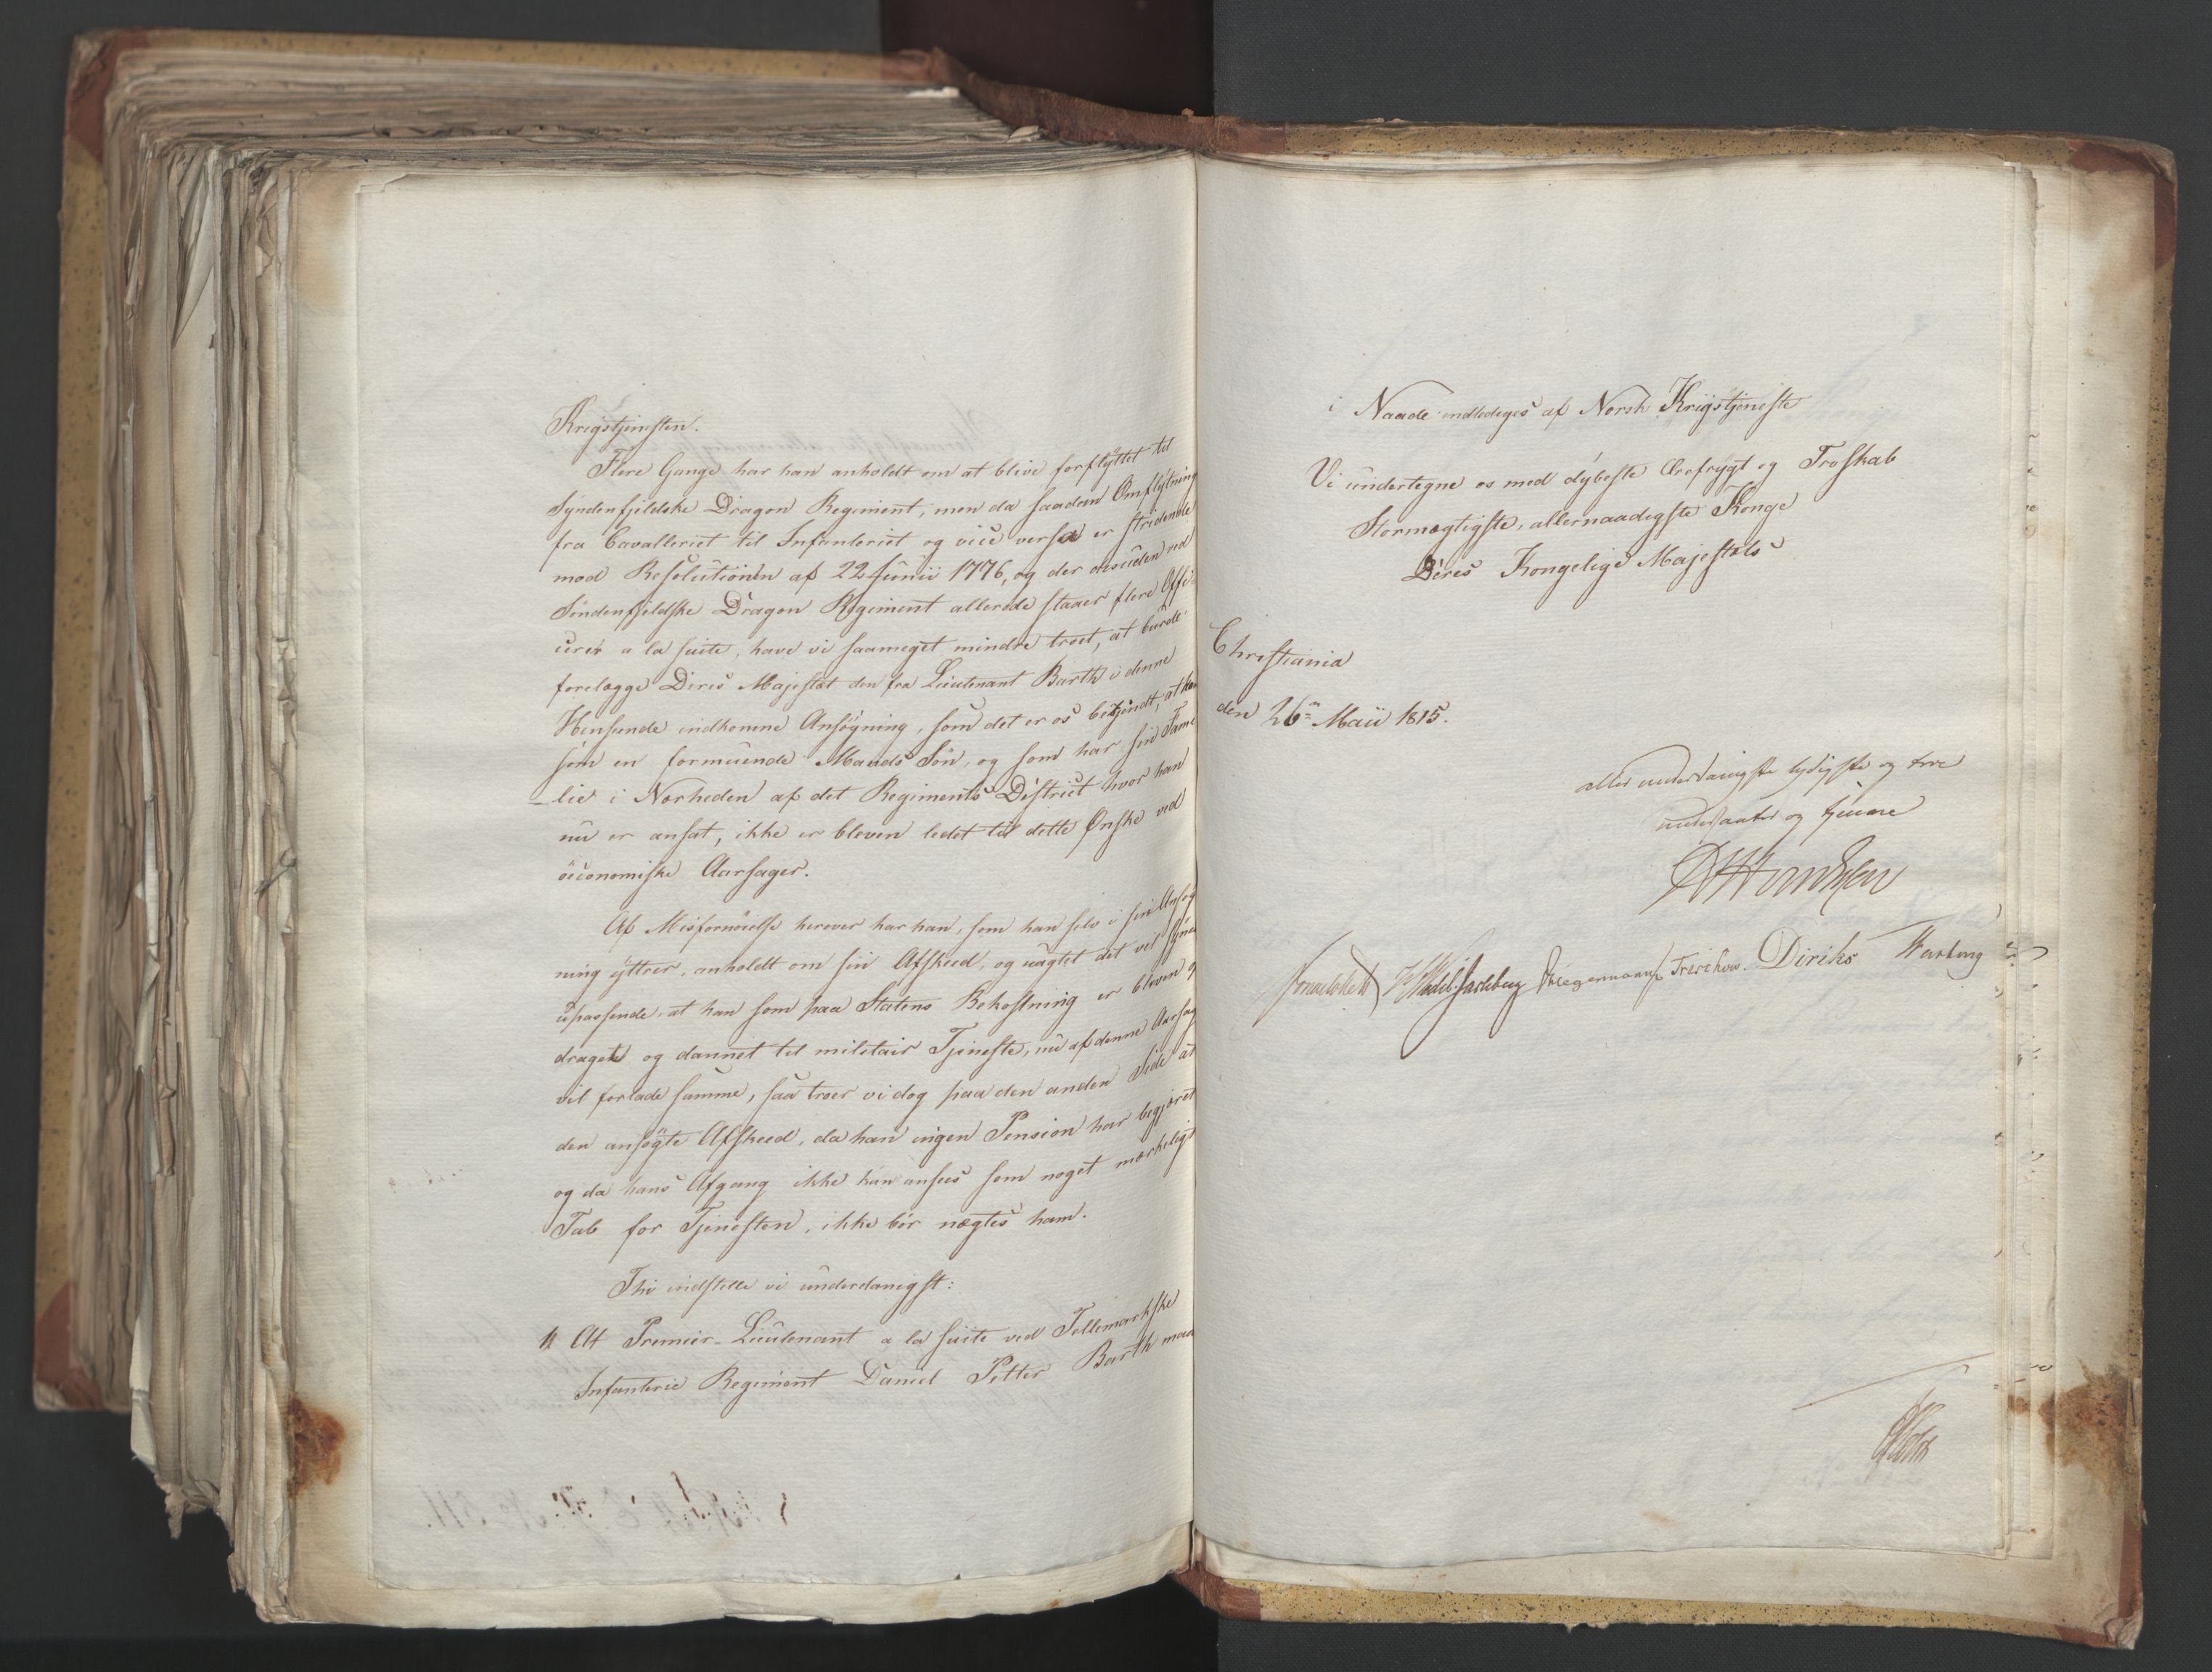 Krigstjenesten.
Flere Gange har han anholdt om at blive forflyttet til
Syndenfjeldske Dragon Regiment, men da saadan Omflytning
fra Cavalleriet til Infanteriet og vice versa er stridende
mod Resolutionen af 22 Junii 1776, og der desuden ved
Søndenfjeldske Dragon Regiment allerede staaer flere Offi-
cerer a la suite, have vi saameget mindre troet, at burde
forelægge Deres Majestæt den fra Lieutenant Barth i denne
Henseende indkomne Ansøgning, som det er os bekjendt, at han
som en formuende Mands Søn, og som har sin Fami
-lie i Nærheden af det Regiments District hvor han
nu er ansat, ikke er bleven ledet til dette Ønske ved
oeconomiske Aarsager.
Af Misfornøielse herover har han, som han selv i sin Ansøg
ning yttrer, anholdt om sin Afskeed, og uagtet det vel synes
upassende, at han som paa Statens Bekostning er bleven op
draget og dannet til militair Tjeneste, nu af denne Aarsag
vil forlade samme, saa troer vi dog paa den anden Side at
den ansøgte Afskeed, da han ingen Pension har begjæret
og da hans Afgang ikke kan ansees som noget mærkeligt
Tab for Tjenesten, ikke bør nægtes ham.
Thi indstille vi underdanigst:
At Premier-Lieutenant a la suite ved Tellemarkske
Infanterie Regiment Daniel Petter Barth maa
i Naade endlediges af Norsk Krigstjeneste
Vi undertegne os med dybeste Ærefrygt og Troskab
Stormægtigste, allernaadigste Konge
Deres Kongelige Majestæts
Christiania
den 26 Maii 1815.
allerunderdanigste lydigste og troe
undersaatter og tjenere
Sommerhielm Wedel-Jarlsberg Hegermann Treschow. Diriks Fasting
Holst